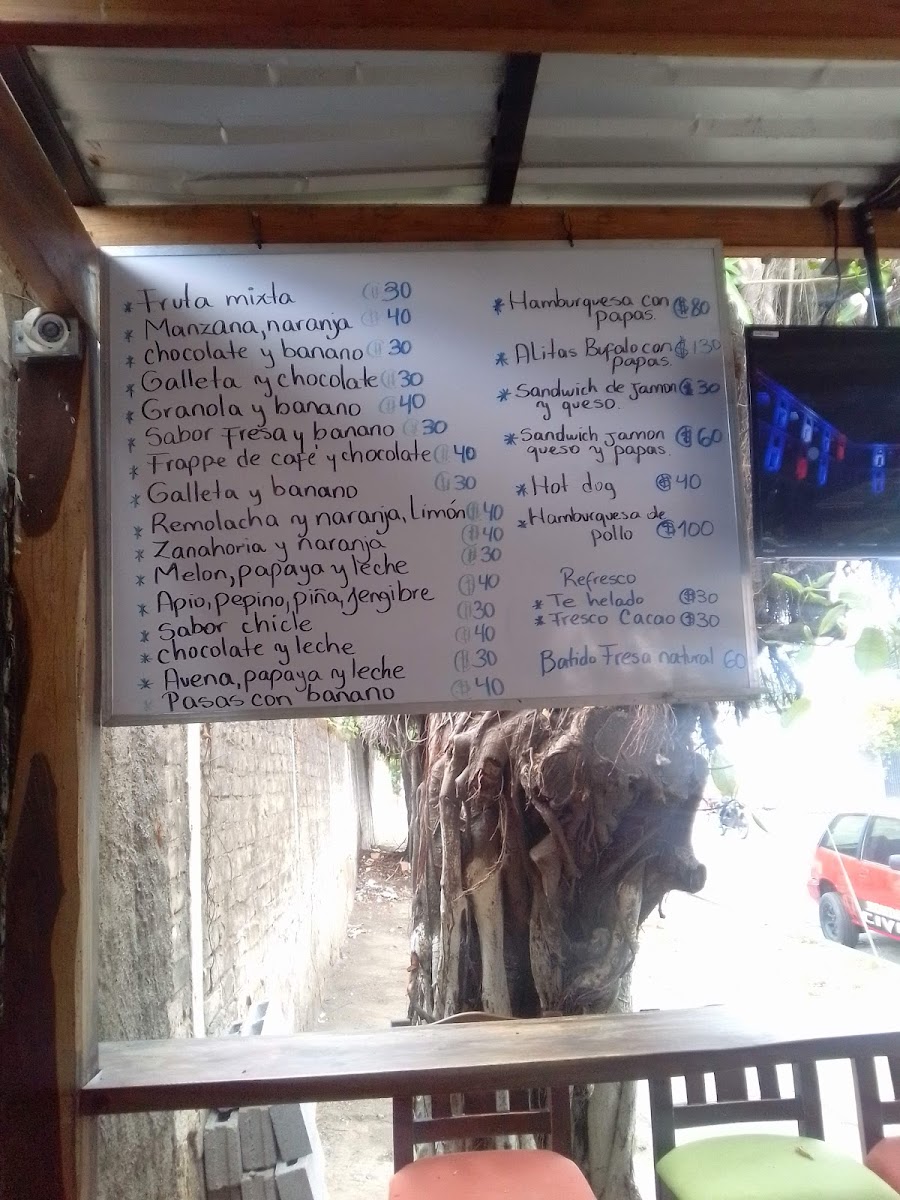 * Fruta mixta C$30
* Manzana, naranja C$40
* chocolate y banano C$30
* Galleta y chocolate C$30
* Granola y banano C$40
* Sabor Fresa y banano C$30
* Frappe de café y chocolate C$40
* Galleta y banano C$30
* Remolacha y naranja, Limón C$40
* Zanahoria y naranja C$40
* Melon, papaya y leche C$30
* Apio, pepino, piña, Jengibre C$40
* Sabor chicle C$30
* chocolate y leche C$40
* Avena, papaya y leche C$30
* Pasas con banano C$40
* Hamburguesa con
papas. C$80
* Alitas Bufalo con C$130
papas.
* Sandwich de jamon C$30
y queso.
* Sandwich jamon C$60
queso y papas.
* Hot dog C$40
* Hamburguesa de
pollo C$100
Refresco
* Te helado C$30
* Fresco Cacao C$30
Batido Fresa natural 60